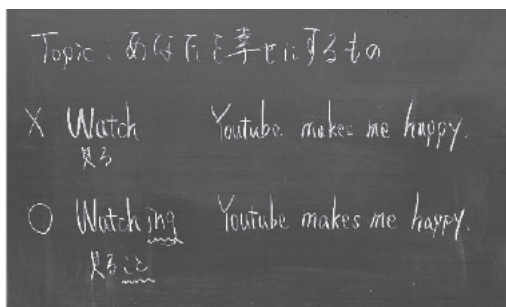 Topic、あなたを幸せにするもの
× Watch Youtube makes me happy.
見る
○ Watching Youtube makes me happy.
見ること